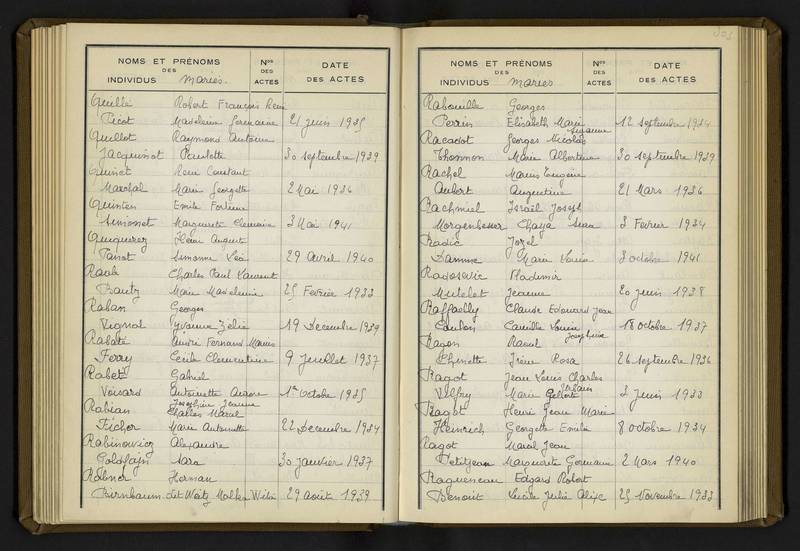 NOMS ET PRÉNOMS DES INDIVIDUS mariés. Nos DES ACTES DATE DES ACTES
Quillé Robert François René
Picot Madeleine Germaine 21 juin 1935
Quillot Raymond Antoine
Jacquinot Paulette 30 septembre 1939
Quinet René Constant
Maréchal Marie Georgette 2 Mai 1936
Quinten Emile
Simonet Marguerite Clemence 3 Mai 1941
Quiquerez Henri August
Tanot Simonne Léa 29 Avril 1940
Raab Charles Paul Laurent
Bautz Marie Madeleine 25 Fevrier 1933
Raban Georges
Vignot Yvonne Zélie 19 Decembre 1939
Rabaté André Fernand Marius
Ferry Cécile Clementine 9 Juillet 1937
Rabet Gabriel
Voisard Antoinette Aurore 1er Octobre 1935
Josephine Jeanne
Rabian Charles Marcel
Ficher Marie Antoinette 22 Decembre 1934
Rabinowicz Alexandre
Goldfajn Sara 30 janvier 1937
Rabner Herman
Birnbaum dit Weitz Malka 29 Août 1939
303
NOMS ET PRÉNOMS DES INDIVIDUS mariés Nos DES ACTES DATE DES ACTES
Rabouille Georges
Perrin Elisabeth Marie Suzanne 12 septembre 1934
Racadot Georges Nicolas
Thomnon Marie Albertine 30 septembre 1939
Rachel Marius Eugène
Aubert Augustine 21 Mars 1936
Rachmiel Israël Joseph
Morgenbesser Chaya Sura 3 Février 1934
Radic Jozef
Damme Marie Louise 3 octobre 1941
Radosevic Vladimir
Mutelet Jeanne 20 juin 1938
Raffaelly Claude Edouard Jean
Coulon Camille Louise Josephine 18 octobre 1937
Ragon Raoul
Chenette Irène Rosa 26 septembre 1936
Ragot Jean Louis Charles
Marie Gilberte 3 juin 1933
Ragot Henri Jean Marie
Heinrich Georgette Emilie 8 octobre 1934
Ragot Marcel Jean
Petitjean Marguerite Germaine 2 Mars 1940
Ragueneau Edgard Robert
Benoit Lucile Julie Alixe 25 Novembre 1933